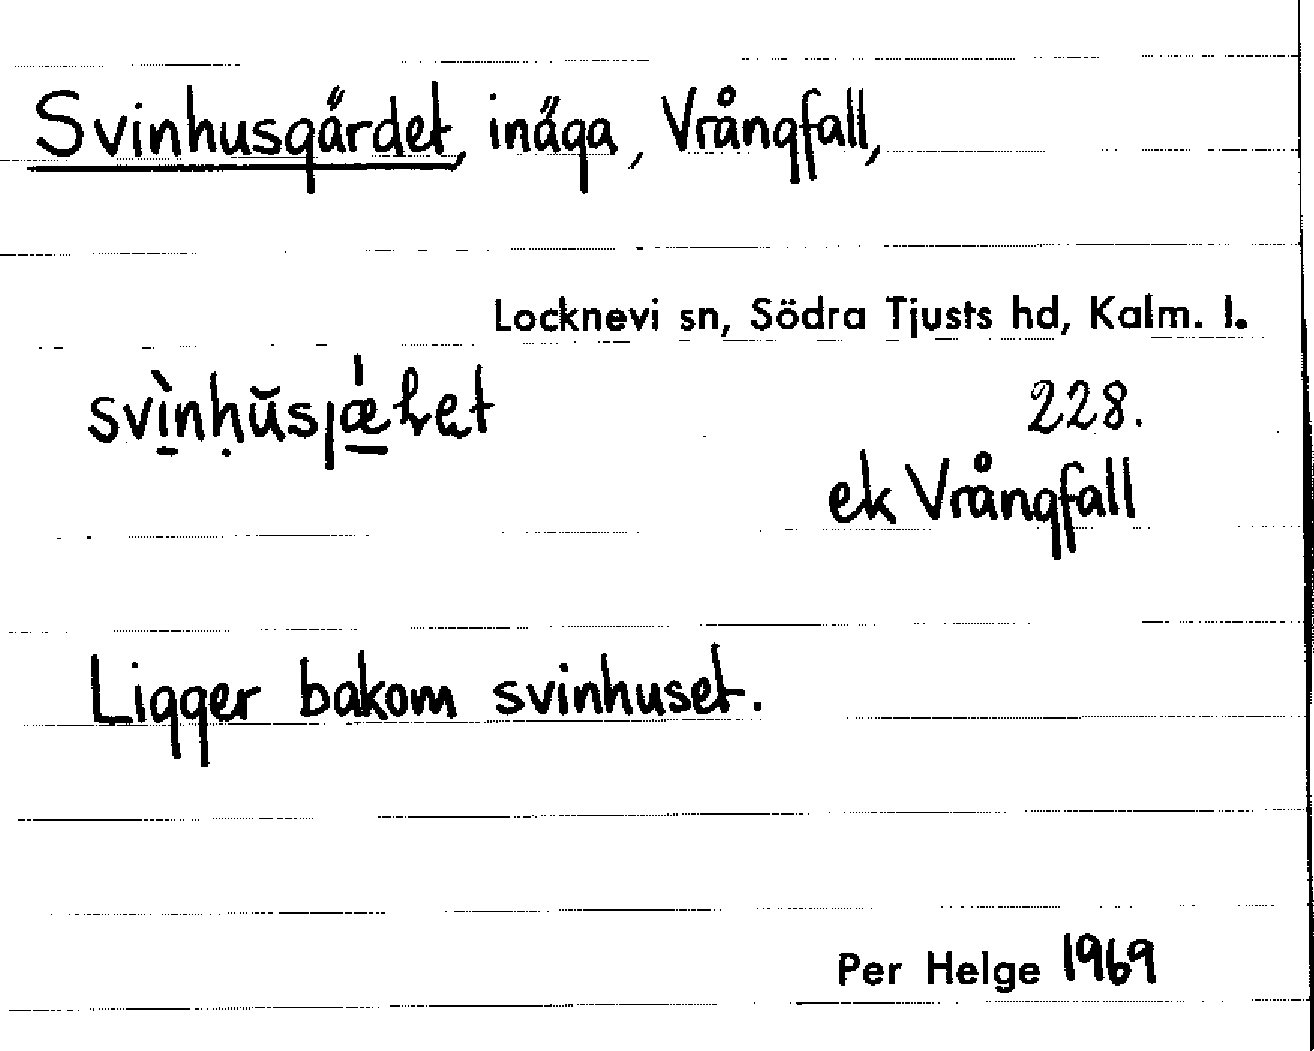 Svinhusgärdet, inäga, Vrångfall,
Locknevi sn, Södra Tjusts hd, Kalm. l.
228.
ek Vrångfall
Ligger bakom svinhuset.
Per Helge 1969